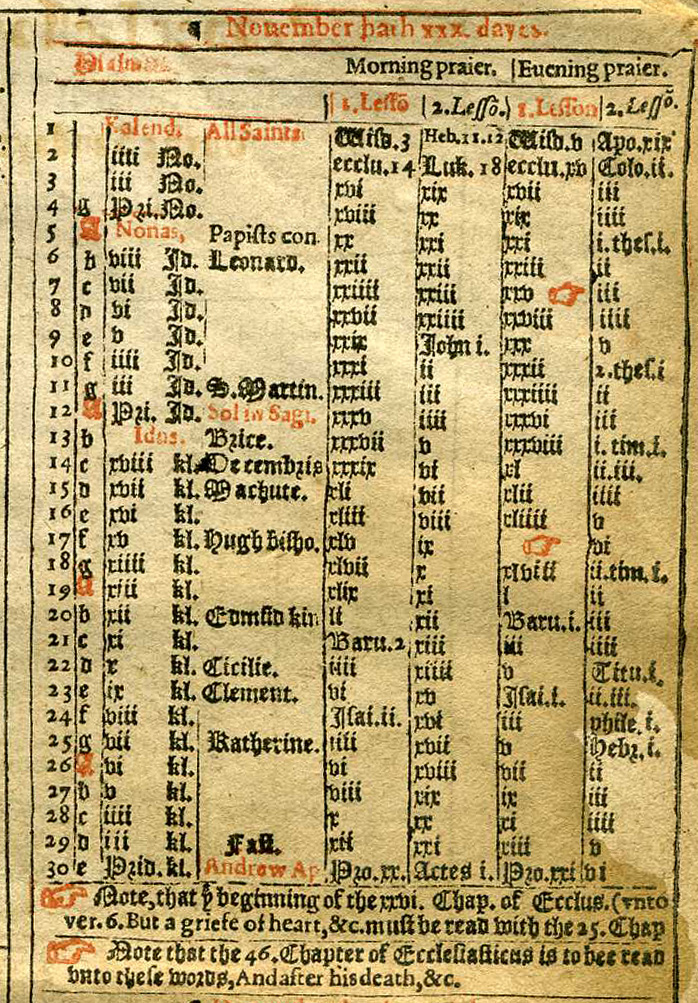 ¶ Nouember hath xxx. dayes.
Psalmes. Morning praier. Euening praier.
1.Lessõ 2.Lessõ. 1.Lesson 2.Lessõ.
1 Kalend. All Saints Wisd.3 Heb.11.12 Wisd.v Apo.xix
2 iiii No. ecclu.14 Luk.18 ecclu.xv Colo.ii.
3 iii No. xvi xix xvii iii
4 g Pri.No. xviii xx xix iiii
5 A Nonas, Papists con. xx xxi xxi i.thes.i.
6 b viii Id. Leonard. xxii xxii xxiii ii
7 c vii Id. xxiiii xxiii xxv ☞ iii
8 d vi Id. xxvii xxiiii xxviii iiii
9 e v Id. xxix John i. xxx v
10 f iiii Id. xxxi ii xxxii 2.thes.i
11 g iii Id. S.Martin. xxxiii iii xxxiiii ii
12 A Pri. Id. Sol in Sagi. xxxv iiii xxxvi iii
13 b Idus. Brice. xxxvii v xxxviii i.tim.i.
14 c xviii kl. Decembris xxxix vi xl ii.iii.
15 d xvii kl. Machute. xli vii xlii iiii
16 e xvi kl. xliii viii xliiii v
17 f xv kl. Hugh bisho. xlv ix ☞ vi
18 g xiiii kl. xlvii x xlviii ii.tim.i.
19 A xiii kl. xlix xi l ii
20 b xii kl. Edmũd kin li xii Baru.i. iii
21 c xi kl. Baru.2 xiii iii iiii
22 d x kl. Cicilie. iiii xiiii v Titu.i.
23 e ix kl. Clement. vi xv Isai.i. ii.iii.
24 f viii kl. Isai.ii. xvi iii phile.i.
25 g vii kl. Katherine. iiii xvii v Hebr.i.
26 A vi kl. vi xviii vii ii
27 b v kl. viii xix ix iii
28 c iiii kl. x xx xi iiii
29 d iii kl. Fast. xii xxi xiii v
30 e Prid.kl. Andrew Ap Pro.xx. Actes i. Pro.xxi vi
☞ Note, that yͤ beginning of the xxvi. Chap. of Ecclus. (vnto
ver.6. But a griefe of heart, &c. must be read with the 25. Chap
☞ Note that the 46. Chapter of Ecclesiasticus is to bee read
vnto these words, And after his death, &c.